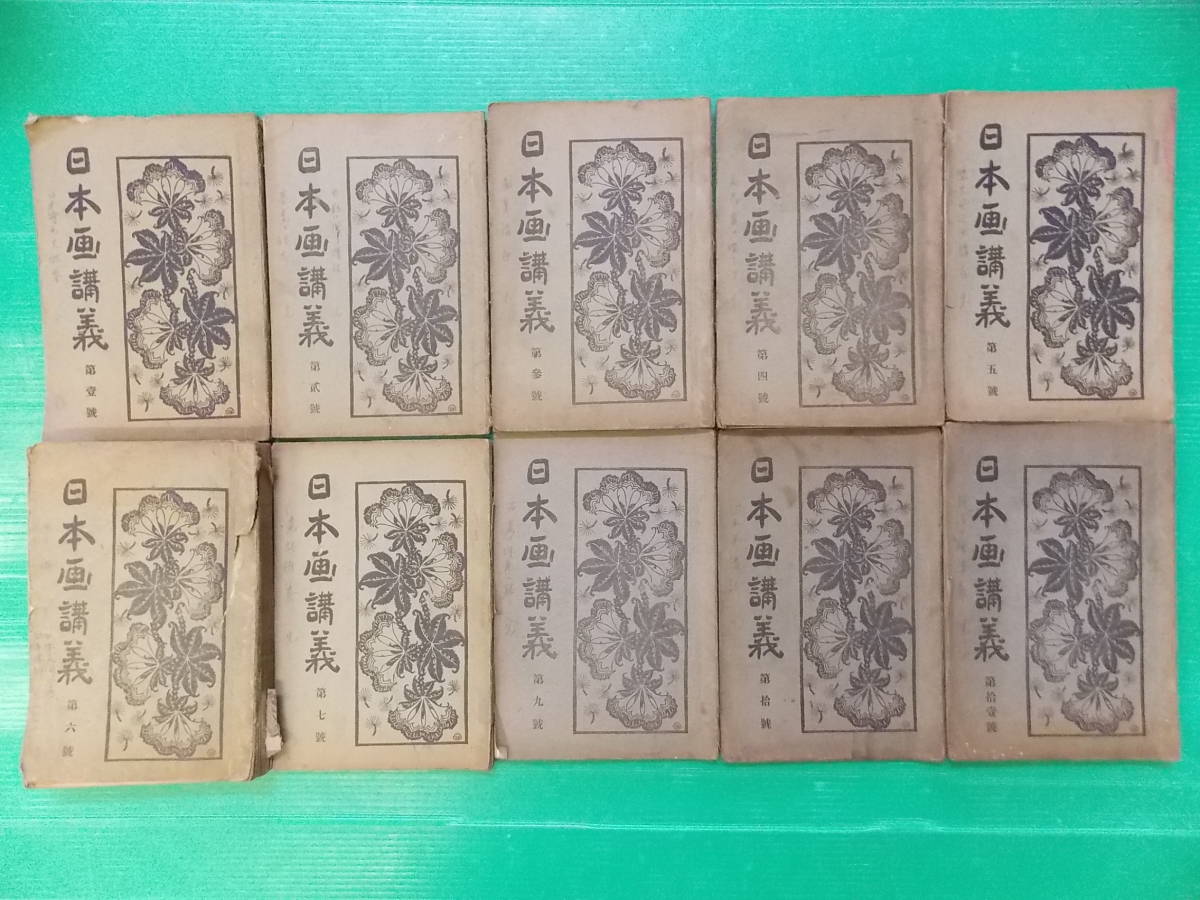 日本画講義
第壹號
日本画講義
第貳號
日本画講義
第參號
日本画講義
第四號
日本画講義
第五號
日本画講義
第六號
日本画講義
第七號
日本画講義
第九號
日本画講義
第拾號
日本画講義
第拾壹號